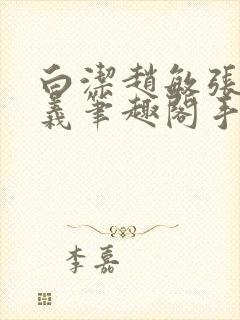 白潔趙敏張
義筆趣閣手
李嘉